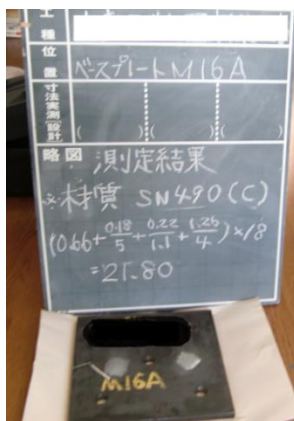 工種
位置 ベースプレートM16A
寸法 実測 設計 ( ) ( ) ( )
略図 測定結果
※材質 SN490(C)
(0.66+0.18/5+0.22/1.1+1.26/4)×18
=21.80
M16A